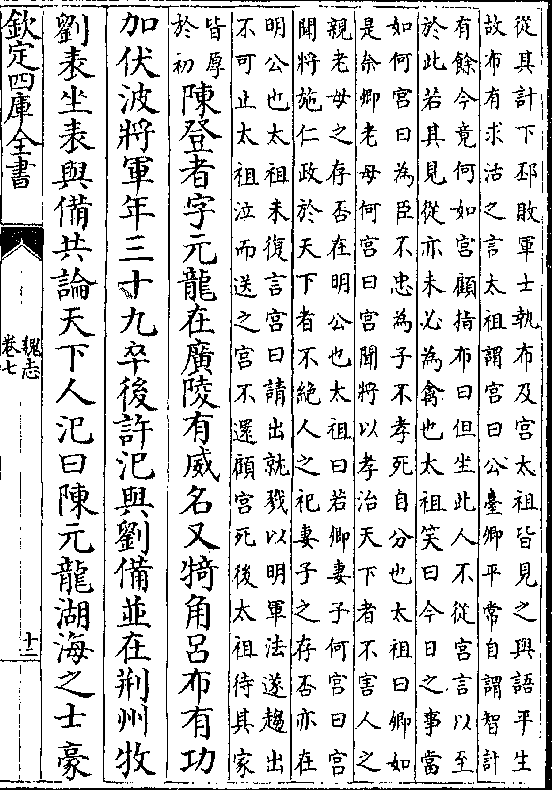 從其計下邳敗軍士執布及宮太祖皆見之與語平生
故布有求活之言太祖謂宮曰公臺卿平常自謂智計
有餘今竟何如宮顧指布曰但坐此人不從宮言以至
於此若其見從亦未必為禽也太祖笑曰今日之事當
如何宮曰為臣不忠為子不孝死自分也太祖曰卿如
是奈卿老母何宮曰宮聞將以孝治天下者不害人之
親老母之存否在明公也太祖曰若卿妻子何宮曰宮
聞將施仁政於天下者不絕人之祀妻子之存否亦在
明公也太祖未復言宮曰請出就戮以明軍法遂趨出
不可止太祖泣而送之宮不還顧宮死後太祖待其家
皆厚
於初
陳登者字元龍在廣陵有威名又犄角呂布有功
加伏波將軍年三十九卒後許汜與劉備並在荆州牧
劉表坐表與備共論天下人汜曰陳元龍湖海之士豪
欽定四庫全書
魏志
卷七
十二